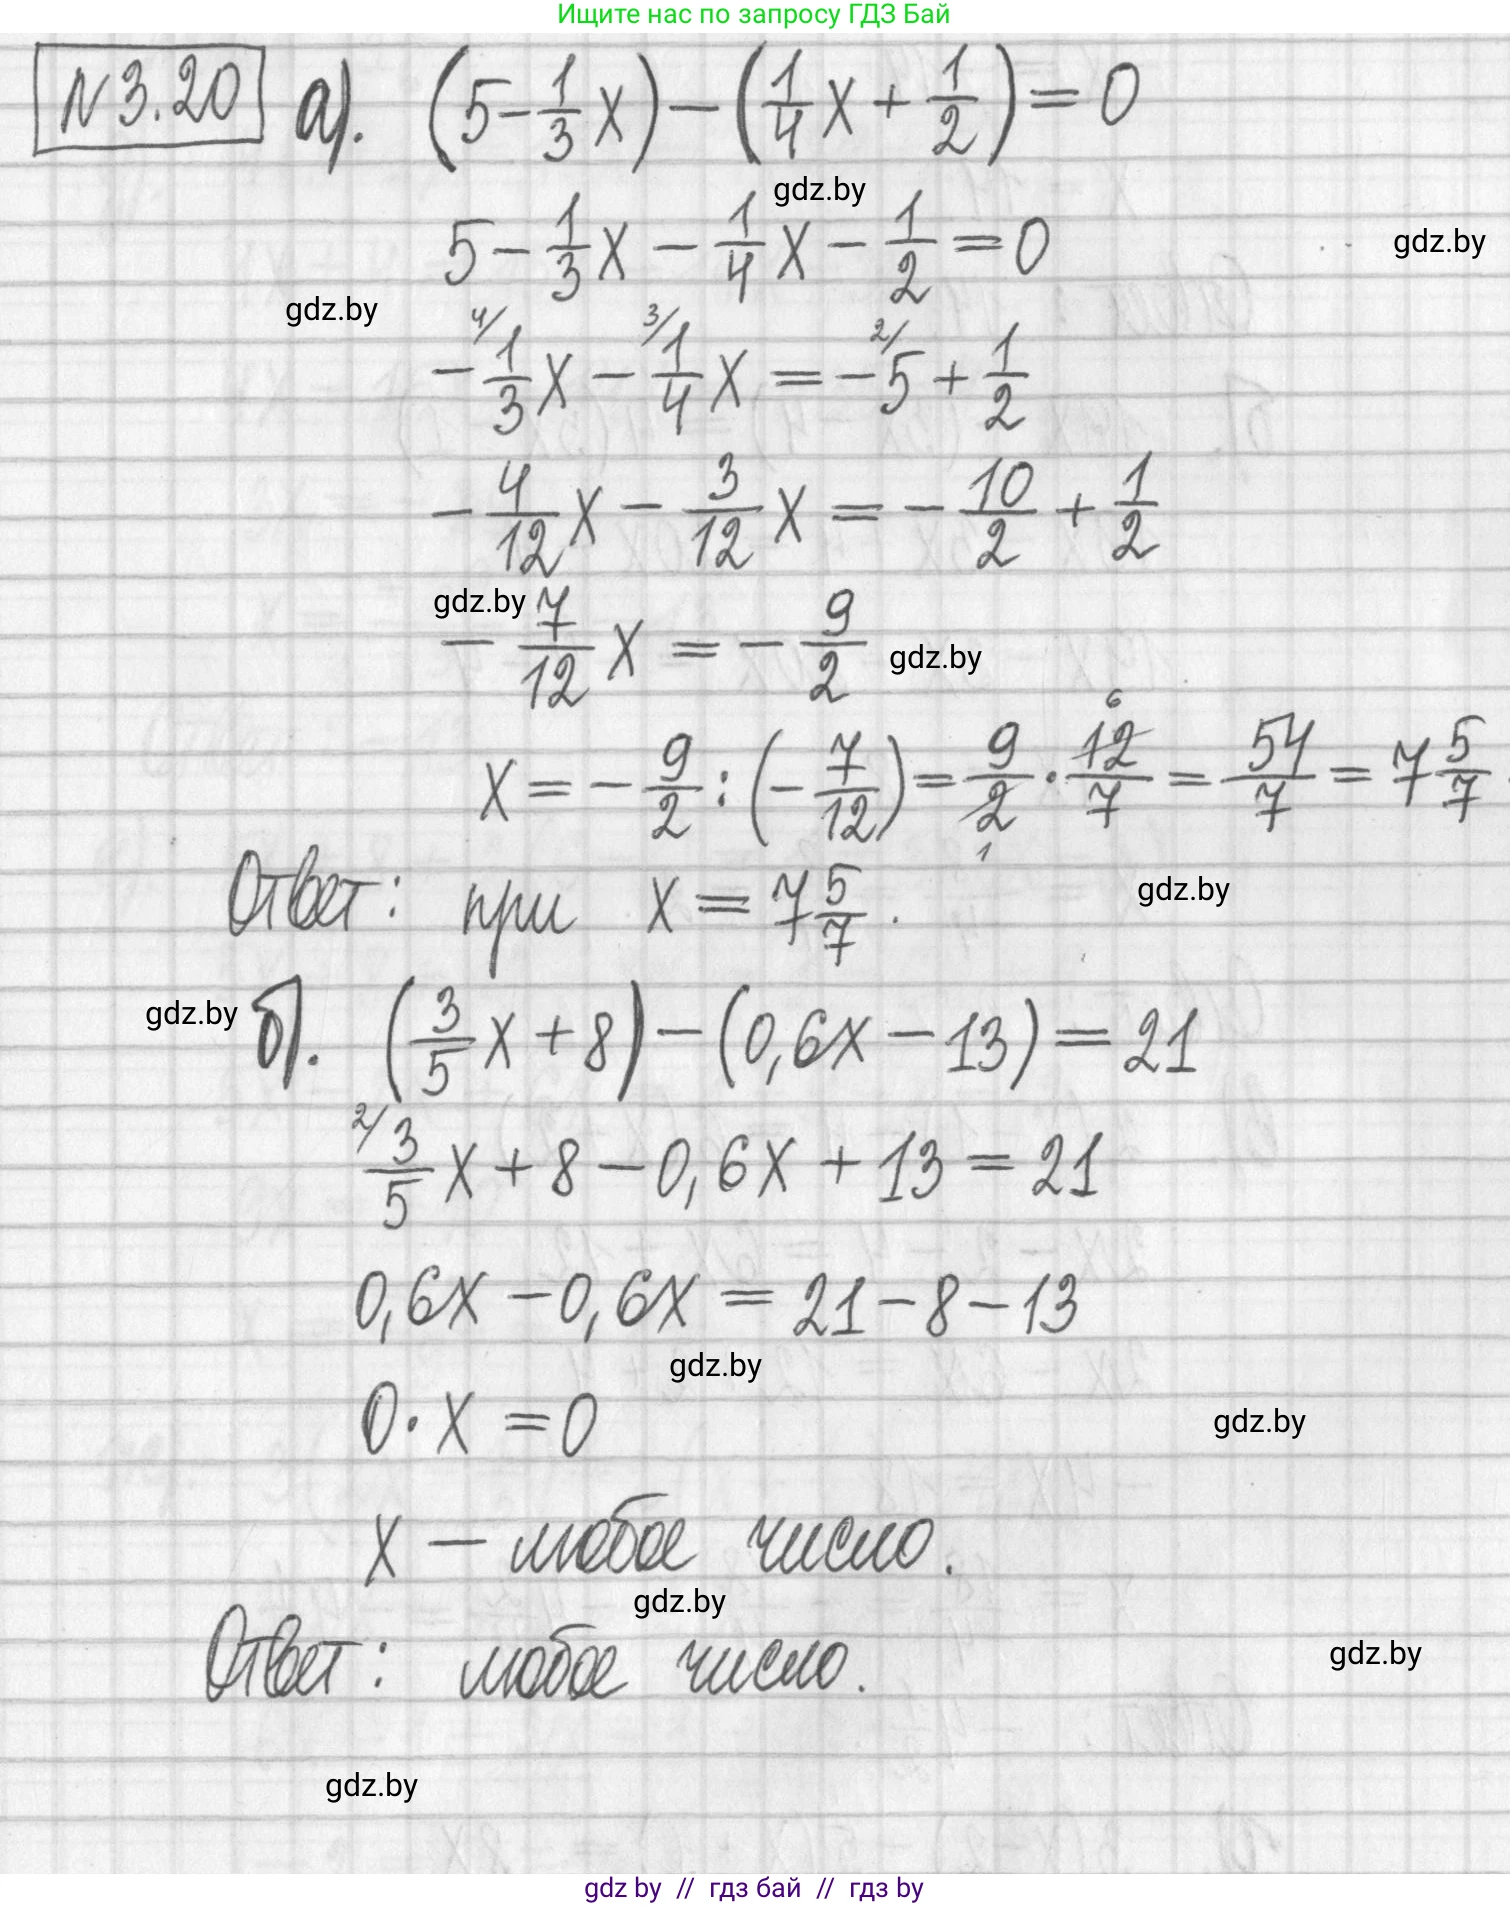 Ищите нас по запросу ГДЗ Бай
N3.20 а). (5 - 1/3 x) - (1/4 x + 1/2) = 0
gdz.by
5 - 1/3 x - 1/4 x - 1/2 = 0
gdz.by
gdz.by
- 4/ 1/3 x - 3/ 1/4 x = - 2/ 5 + 1/2
- 4/12 x - 3/12 x = - 10/2 + 1/2
gdz.by
- 7/12 x = - 9/2
gdz.by
x = - 9/2 : (- 7/12) = 9/2 1 · 12 6/7 = 54/7 = 7 5/7.
Ответ: при x = 7 5/7.
gdz.by
gdz.by
б). (3/5 x + 8) - (0,6x - 13) = 21
2/ 3/5 x + 8 - 0,6x + 13 = 21
0,6x - 0,6x = 21 - 8 - 13
gdz.by
0 · x = 0
gdz.by
x - любое число.
gdz.by
Ответ: любое число.
gdz.by
gdz.by
gdz by // гдз бай // гдз by